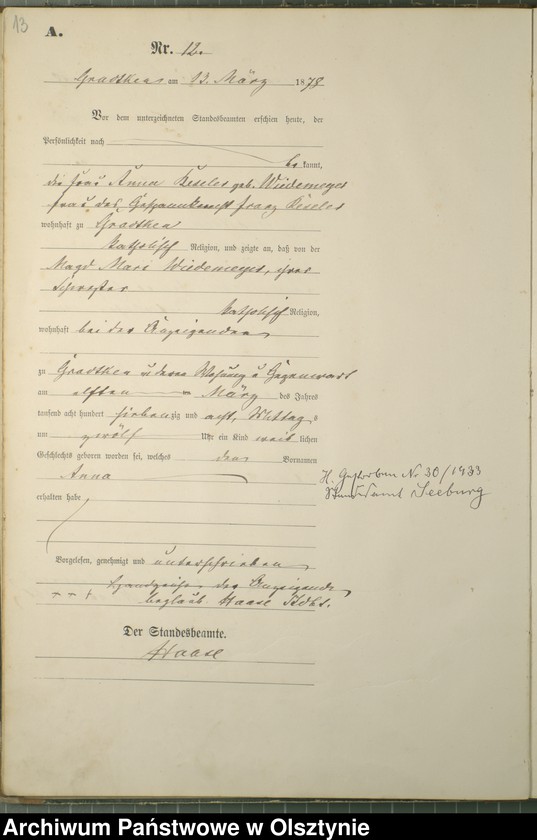 13
A.
Nr. 12.
Gradtken am 13. März 1878
Vor dem unterzeichneten Standesbeamten erschien heute, der
Persönlichkeit nach
bekannt,
die Frau Anna geb. Wiedemeyer
Frau des Franz
wohnhaft zu Gradtken
katholisch Religion, und zeigte an, daß von der
Magd Marie Wiedemeyer, ihrer
Schwester
katholisch Religion,
wohnhaft bei der Anzeigenden
zu Gradtken in deren Wohnung u Gegenwart
am elften März des Jahres
tausend acht hundert siebenzig und acht, Mittags
um zwölf Uhr ein Kind weiblichen
Geschlechts geboren worden sei, welches den Vornamen
Anna
erhalten habe
H. Gestorben Nr 30/1933
Standesamt Seeburg
Vorgelesen, genehmigt und unterschrieben
Handzeichen der Anzeigenden
- - + beglaub. Haase Stdbt.
Der Standesbeamte.
Haase
Archiwum Państwowe w Olsztynie